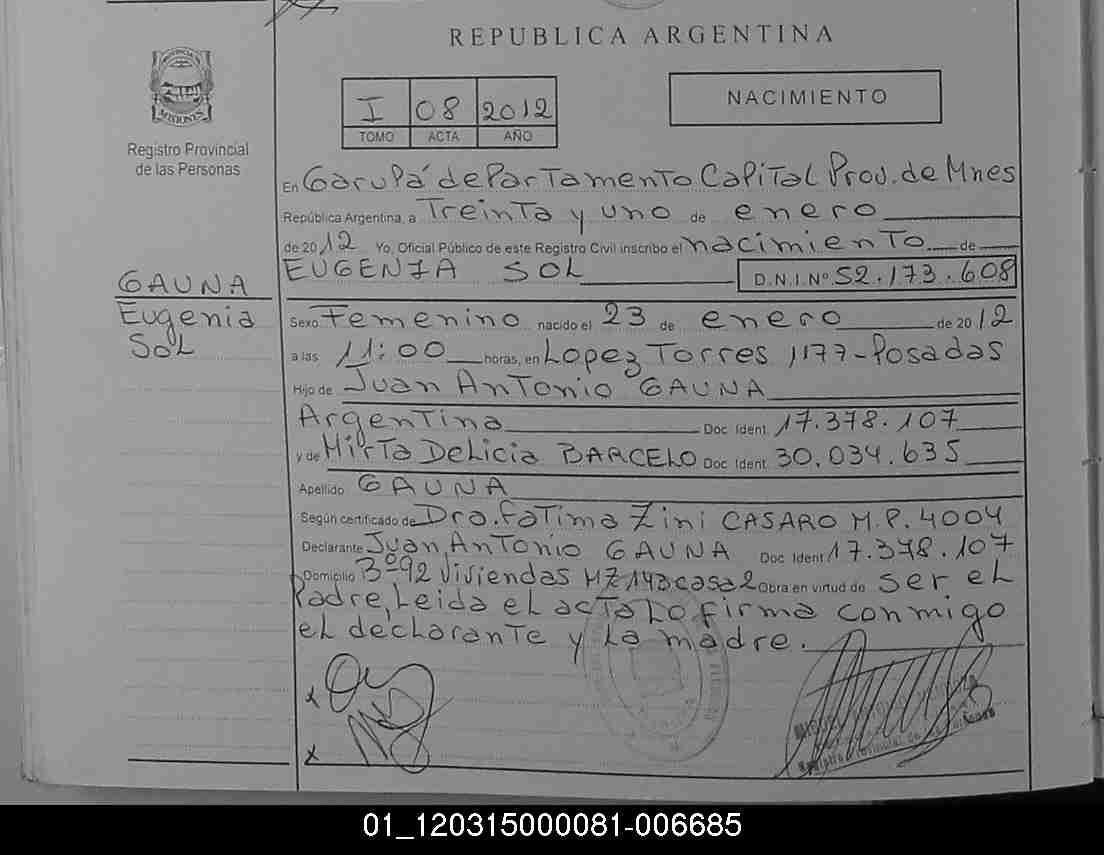 REPUBLICA ARGENTINA
PROVINCIA DE
MISIONES
Registro Provincial
de las Personas
I 08 2012
TOMO ACTA AÑO
NACIMIENTO
En Garupá departamento Capital Prov. de Mnes
República Argentina, a Treinta y uno de enero
de 2012 Yo, Oficial Público de este Registro Civil inscribo el nacimiento de
EUGENIA SOL D.N.I. Nº 52.173.608
GAUNA
Eugenia
Sol
Sexo Femenino nacido el 23 de enero de 2012
a las 11:00 horas, en Lopez Torres 1177-Posadas
Hijo de Juan Antonio GAUNA
Argentina Doc Ident. 17.378.107
y de Mirta Delicia BARCELO Doc Ident. 30.034.635
Apellido GAUNA
Según certificado de Dra. Fatima Zini CASARO M.P. 4004
Declarante Juan Antonio GAUNA Doc Ident 17.378.107
Domicilio 3º92 Viviendas MZ 143 casa 2 Obra en virtud de ser el
Padre, Leida el acta Lo firma conmigo
el declarante y La madre.
x
x
Registro Provincial de las Personas
01_120315000081-006685